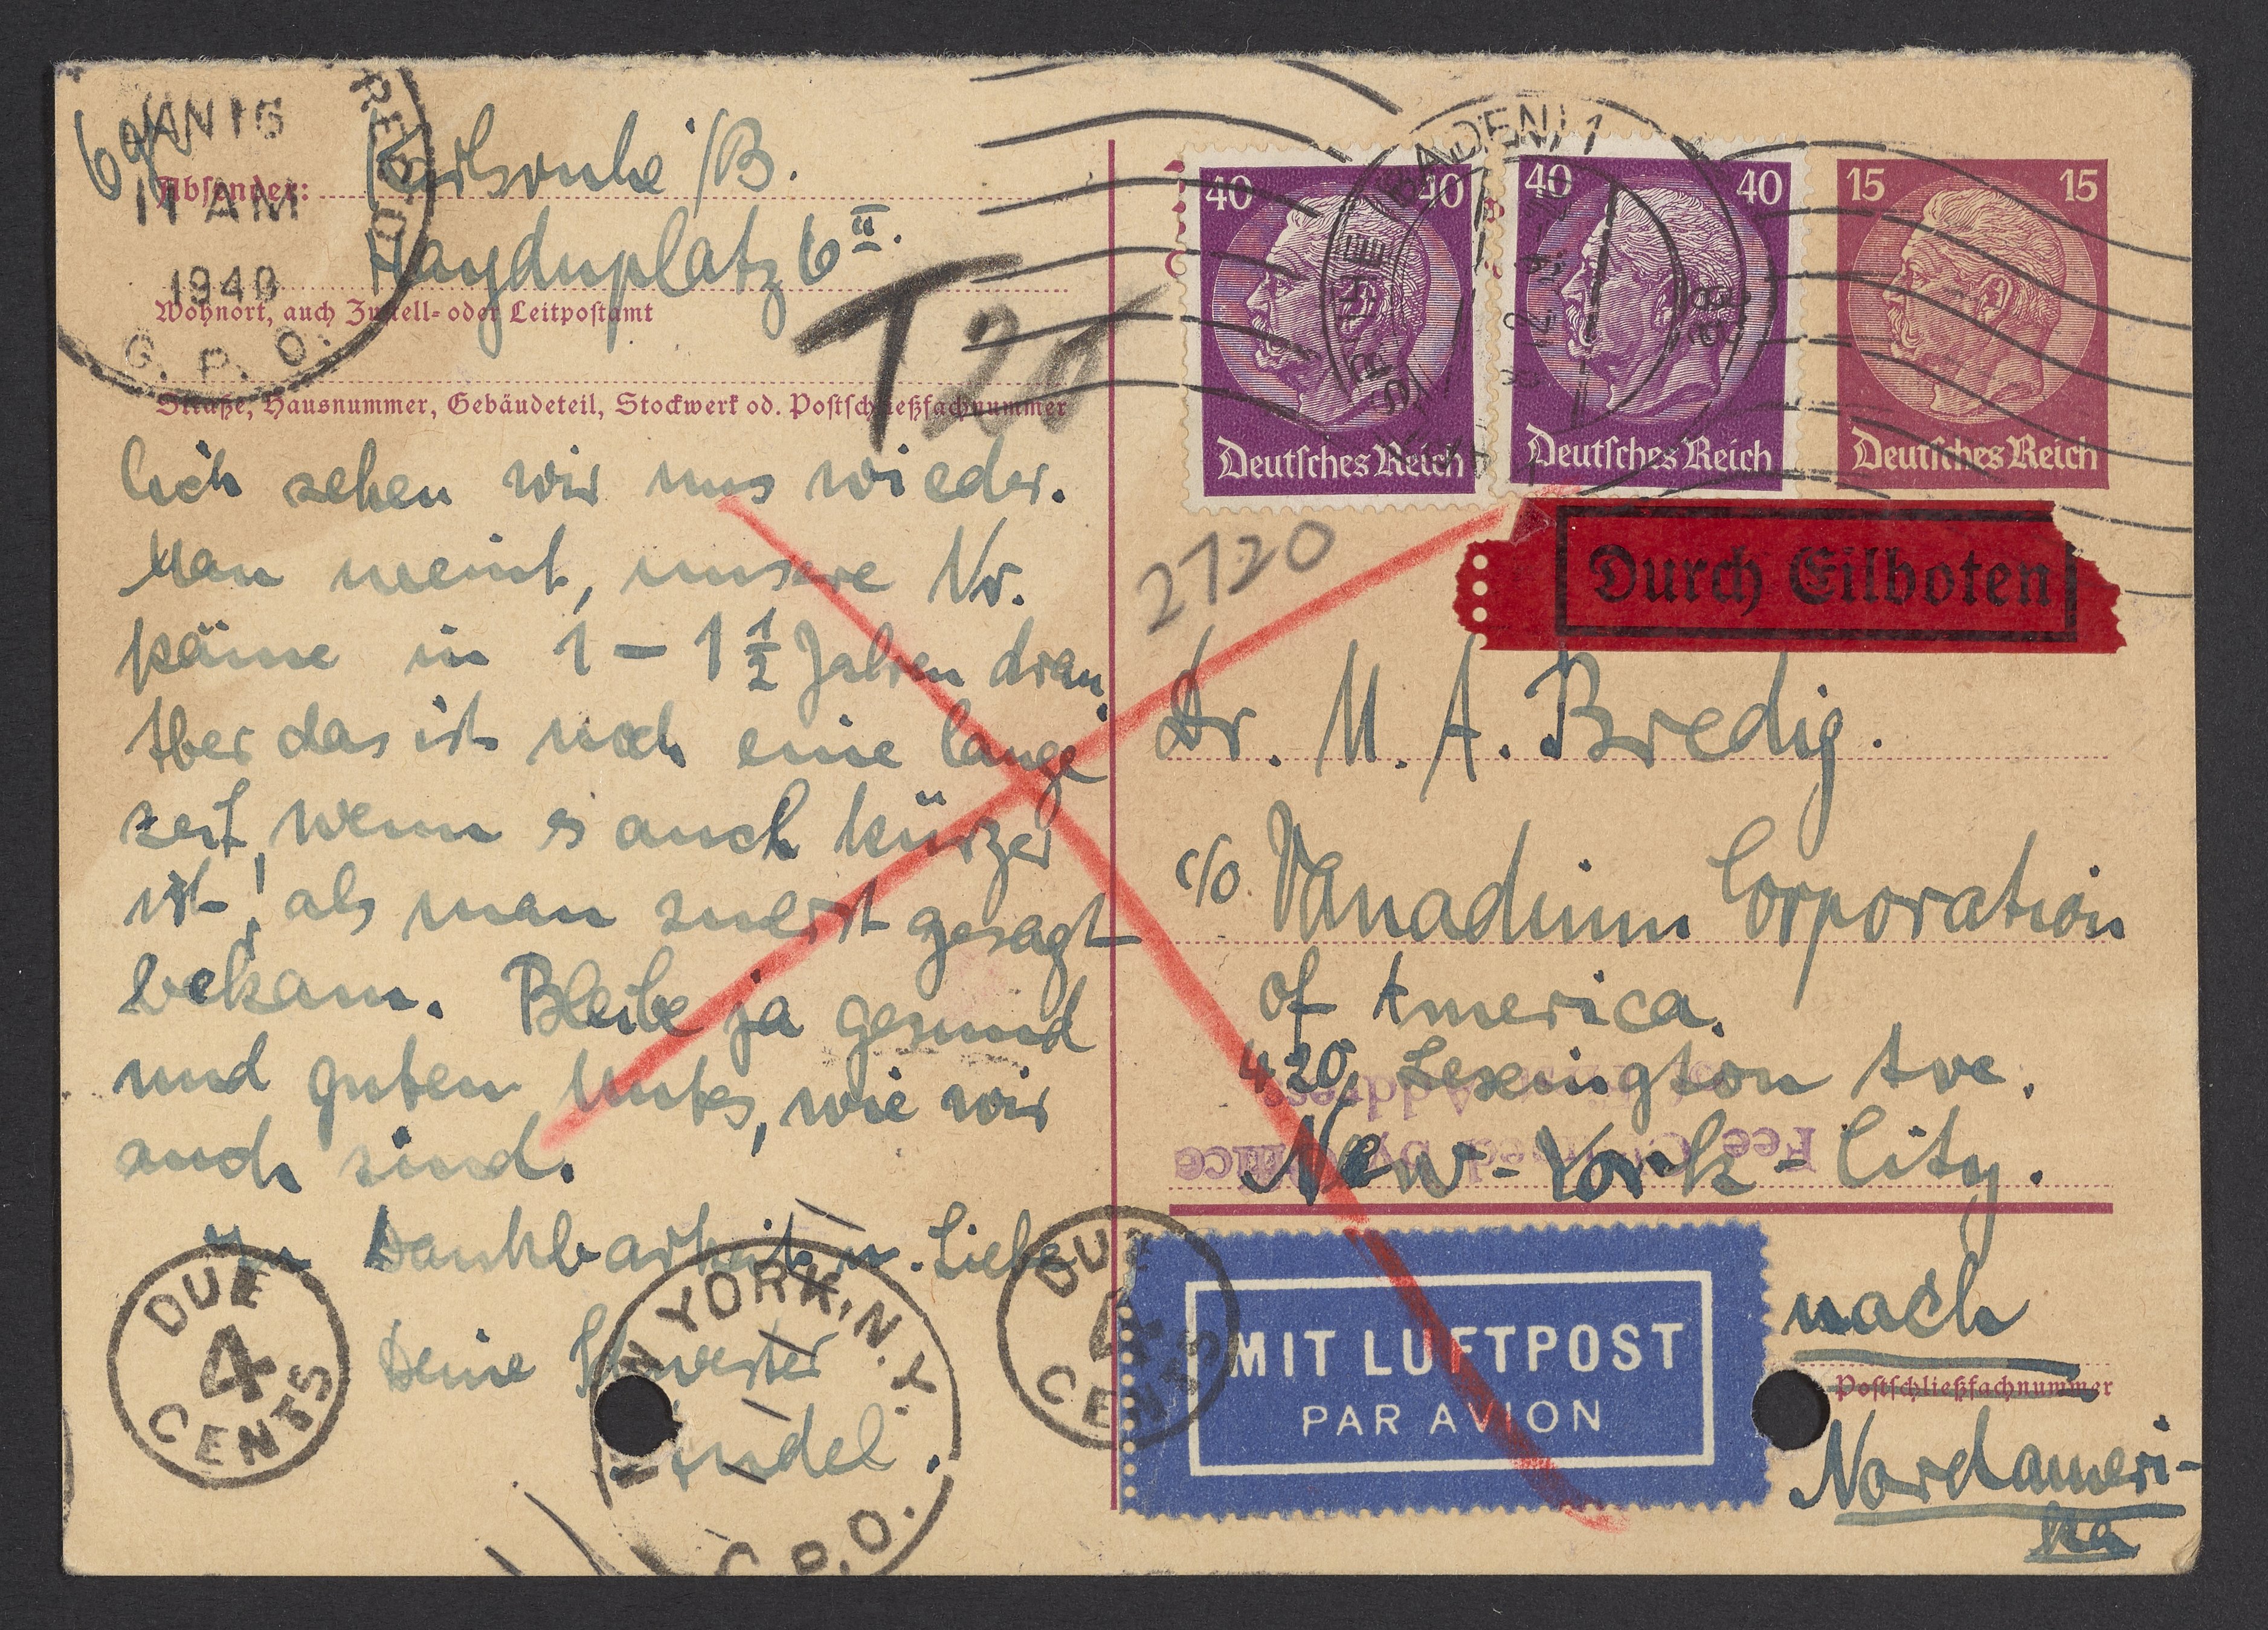 JAN 16
11 AM
1940
REC'D
G. P. O.
69
Absender:
Karlsruhe /B.
Haydnplatz 6 II.
Wohnort, auch Zustell- oder Leitpostamt
T 20
Straße, Hausnummer, Gebäudeteil, Stockwerk od. Postschließfachnummer
lich sehen wir uns wieder.
Man meint, unsere Nr.
käme in 1 – 1 1/2 Jahren dran.
Aber das ist noch eine lange
Zeit, wenn es auch kürzer
ist, als man zuerst gesagt
bekam. Bleibe ja gesund
und guten Mutes, wie wir
auch sind.
In Dankbarkeit u. Liebe
Deine Schwester
DUE
4
CENTS
N YORK, N.Y.
G.P.O.
DUE
4
CENTS
40 40
Deutsches Reich
40 40
Deutsches Reich
15 15
Deutsches Reich
KARLSRUHE (BADEN) 1
Durch Eilboten
2120
Dr. M. A. Bredig.
c/o. Vanadium Corporation
of America.
420, Lexington Ave.
New-York-City.
Fee Claimed by Office
of First Address
MIT LUFTPOST
PAR AVION
nach
Postschließfachnummer
Nordameri-
ka